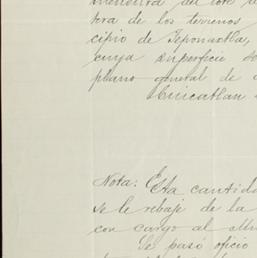 tera de los terrenos
cipio de Teponaxtla,
cuya superficie
plano general de
Cuicatlan
Nota: Esta cantida
se le rebaje de la
con cargo al
Se pasó oficio